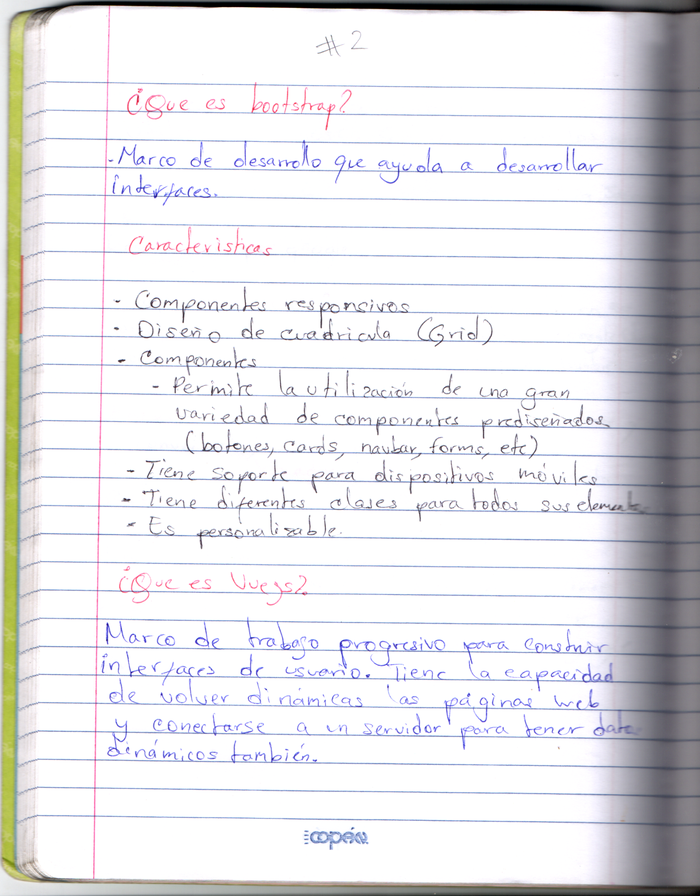 #2
¿Que es bootstrap?
- Marco de desarrollo que ayuda a desarrollar
interfaces.
Caracteristicas
- Componentes responsivos
- Diseño de cuadricula (Grid)
- Componentes
- Permite la utilización de una gran
variedad de componentes prediseñados.
(botones, cards, navbar, forms, etc)
- Tiene soporte para dispositivos móviles
- Tiene diferentes clases para todos sus
- Es personalizable.
¿Que es Vuejs?
Marco de trabajo progresivo para construir
interfaces de usuario. Tiene la capacidad
de volver dinámicas las páginas web
y conectarse a un servidor para tener
dinámicos también.
copán